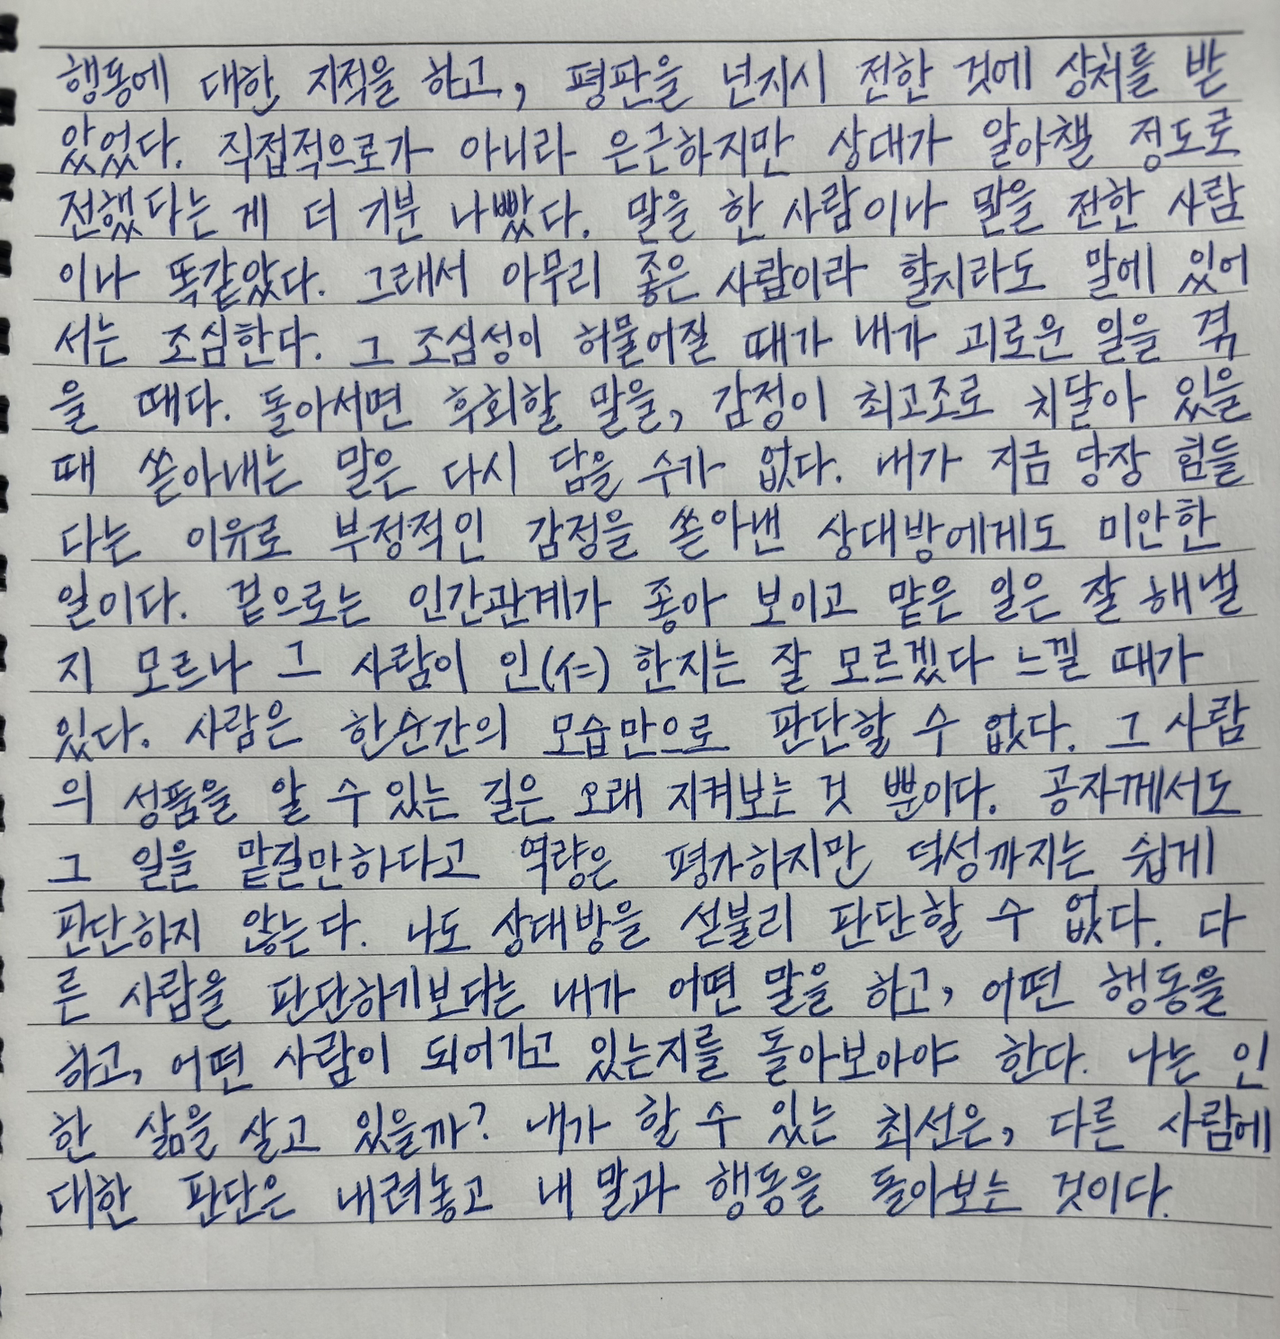 행동에 대한 지적을 하고, 평판을 넌지시 전한 것에 상처를 받
았었다. 직접적으로가 아니라 은근하지만 상대가 알아챌 정도로
전했다는 게 더 기분 나빴다. 말을 한 사람이나 말을 전한 사람
이나 똑같았다. 그래서 아무리 좋은 사람이라 할지라도 말에 있어
서는 조심한다. 그 조심성이 허물어질 때가 내가 괴로운 일을 겪
을 때다. 돌아서면 후회할 말을, 감정이 최고조로 치달아 있을
때 쏟아내는 말은 다시 담을 수가 없다. 내가 지금 당장 힘들
다는 이유로 부정적인 감정을 쏟아낸 상대방에게도 미안한
일이다. 겉으로는 인간관계가 좋아 보이고 맡은 일은 잘 해낼
지 모르나 그 사람이 인(仁)한지는 잘 모르겠다 느낄 때가
있다. 사람은 한순간의 모습만으로 판단할 수 없다. 그 사람
의 성품을 알 수 있는 길은 오래 지켜보는 것 뿐이다. 공자께서도
그 일을 맡길만하다고 역량은 평가하지만 덕성까지는 쉽게
판단하지 않는다. 나도 상대방을 섣불리 판단할 수 없다. 다
른 사람을 판단하기보다는 내가 어떤 말을 하고, 어떤 행동을
하고, 어떤 사람이 되어가고 있는지를 돌아보아야 한다. 나는 인
한 삶을 살고 있을까? 내가 할 수 있는 최선은, 다른 사람에
대한 판단은 내려놓고 내 말과 행동을 돌아보는 것이다.